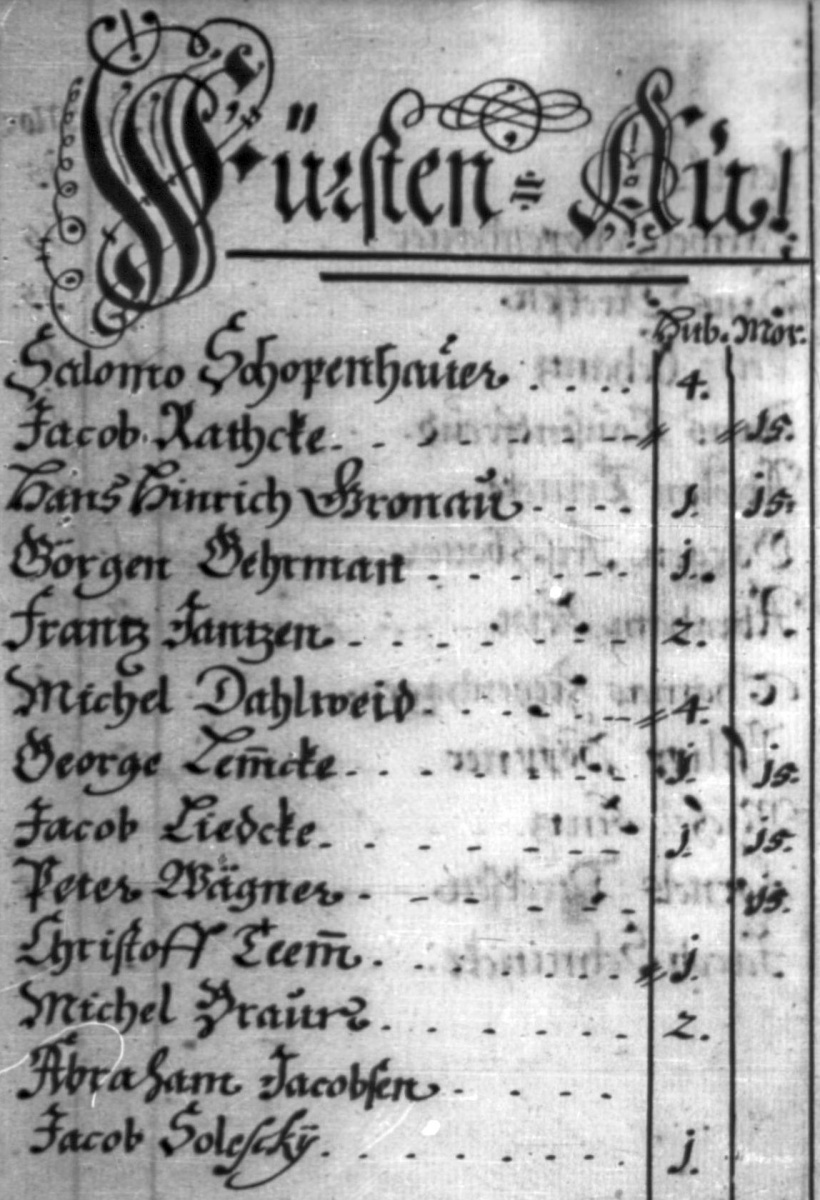 Fürsten = Aü!
Hub. Mor.
Salomo Schopenhaűer . . . . 4.
Jacob Rathcke - - - - - - - 15.
Hans Hinrich Gronaű - - - - 1. 15.
Görgen Gehrman . . - - - 1.
Frantz Jantzen - - - - - - 2.
Michel Dahlweid - - - - - 4.
George Lem̄cke - - - - - - 1. 15.
Jacob Liedcke - - - - - - 1. 15.
Peter Wägner - - - - - 15.
Christoff Teem̄ . . - - - - 1.
Michel Braűn . . - - - - 2.
Abraham Jacobsen - - - -
Jacob Solesckÿ - - - - - - - 1.